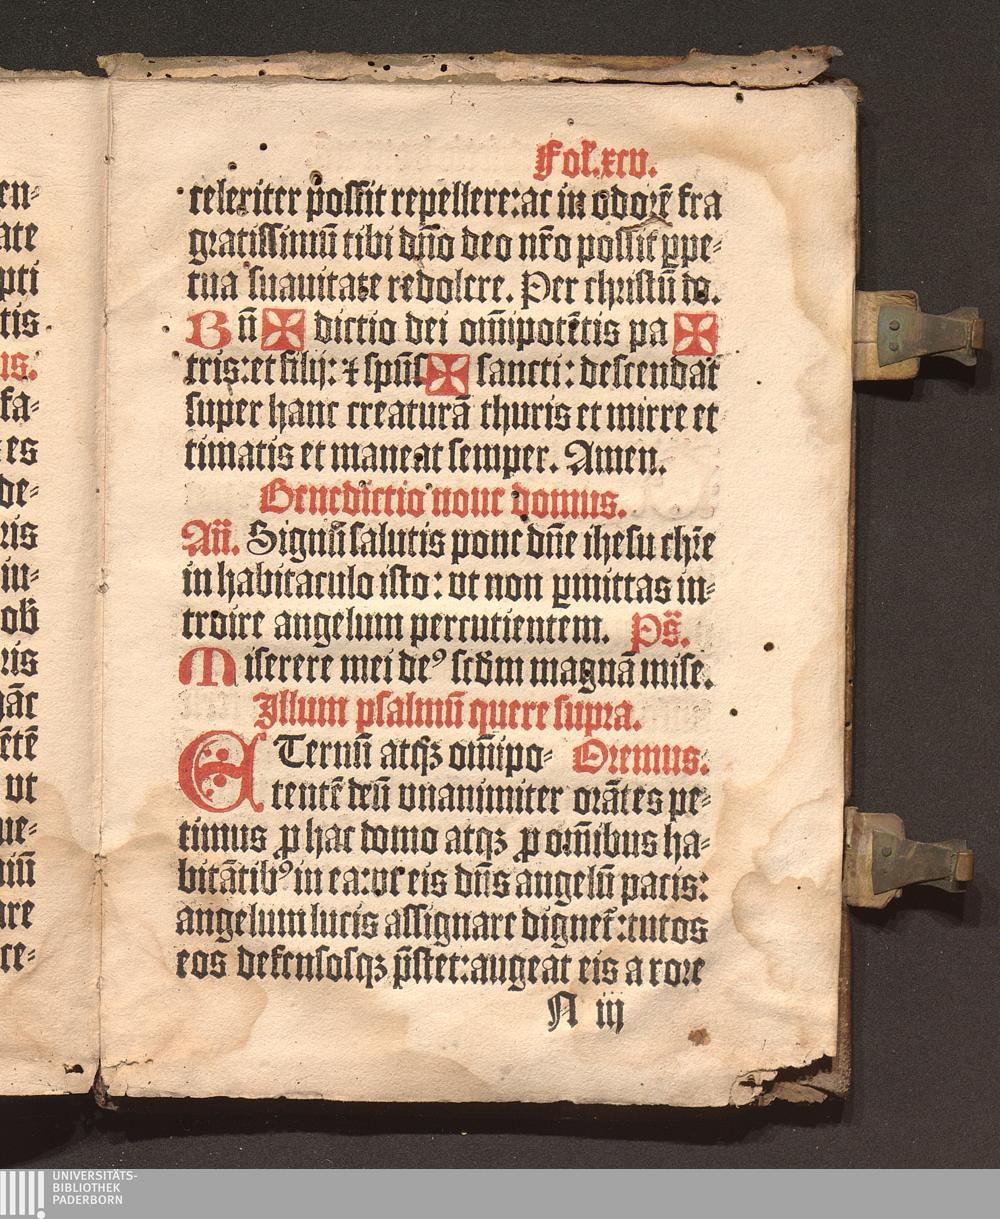 en⸗
ate
pti
tis
us.
fa⸗
es
de⸗
ris
in⸗
ob̄
ris
hāc
ētē
ut
ne⸗
niū
are
ce⸗
Fol.xcv.
celeriter possit repellere:ac in odorē fra
gratissimū tibi dño deo nr̄o possit ꝑpe⸗
tua suauitate redolere. Per christū do.
Bn̄ ✠ dictio dei om̄ipotētis pa ✠
tris:et filij: ⁊ spūs ✠ sancti: descendat
super hanc creaturā thuris et mirre et
timatis et maneat semper. Amen.
Benedictio noue domus.
Añ. Signū salutis pone dn̄e ihesu chr̄e
in habitaculo isto: vt non ꝑmittas in⸗
troire angelum percutientem. Ps̄.
Miserere mei deꝰ scd̄m magnā mise.
Illum psalmū quere supra.
ETernū atqꝫ om̄ipo⸗ Oremus.
tentē deū vnanimiter orātes pe⸗
timus ꝓ hac domo atqꝫ ꝓ om̄ibus ha⸗
bitātibꝰ in ea:vt eis dn̄s angelū pacis:
angelum lucis assignare dignet̄:tutos
eos defensosqꝫ p̄stet:augeat eis a rore
N iij
UNIVERSITÄTS-
BIBLIOTHEK
PADERBORN